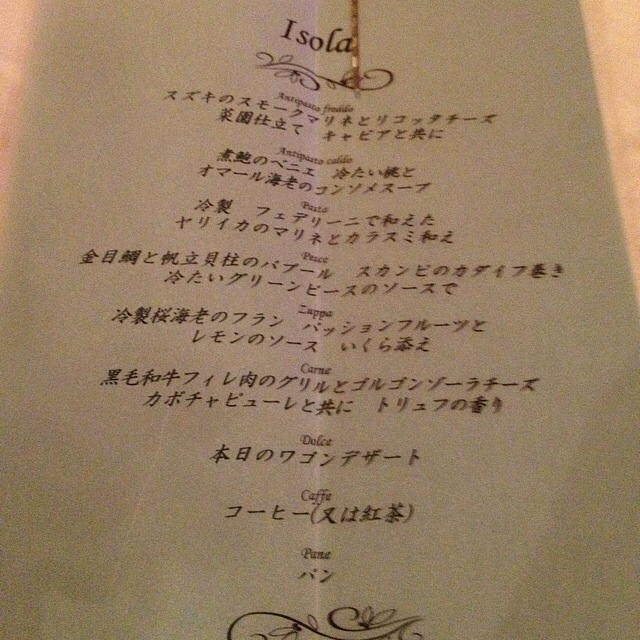 Isola
Antipasto freddo
スズキのスモークマリネとリコッタチーズ
菜園仕立て　キャビアと共に
Antipasto caldo
煮鮑のベニエ　冷たい桃と
オマール海老のコンソメスープ
Pasta
冷製　フェデリーニで和えた
ヤリイカのマリネとカラスミ和え
Pesce
金目鯛と帆立貝柱のバプール　スカンピのカダイフ巻き
冷たいグリーンピースのソースで
Zuppa
冷製桜海老のフラン　パッションフルーツと
レモンのソース　いくら添え
Carne
黒毛和牛フィレ肉のグリルとゴルゴンゾーラチーズ
カボチャピューレと共に　トリュフの香り
Dolce
本日のワゴンデザート
Caffe
コーヒー(又は紅茶)
Pane
パン